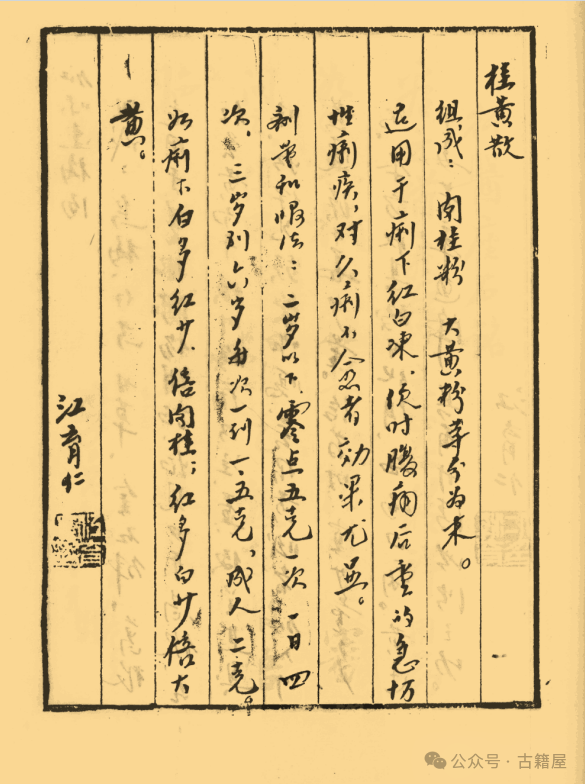 桂黄散
组成：肉桂粉 大黄粉等分为末。
适用于痢下红白冻、便时腹痛后重的急切
性痢疾，对久痢不愈者効果尤显。
剂量和服法：二岁以下零点五克一次一日四
次，三岁到六岁每次一到一、五克，成人二克。
如痢下白多红少，倍肉桂；红多白少倍大
黄。
江育仁
公众号·古籍屋